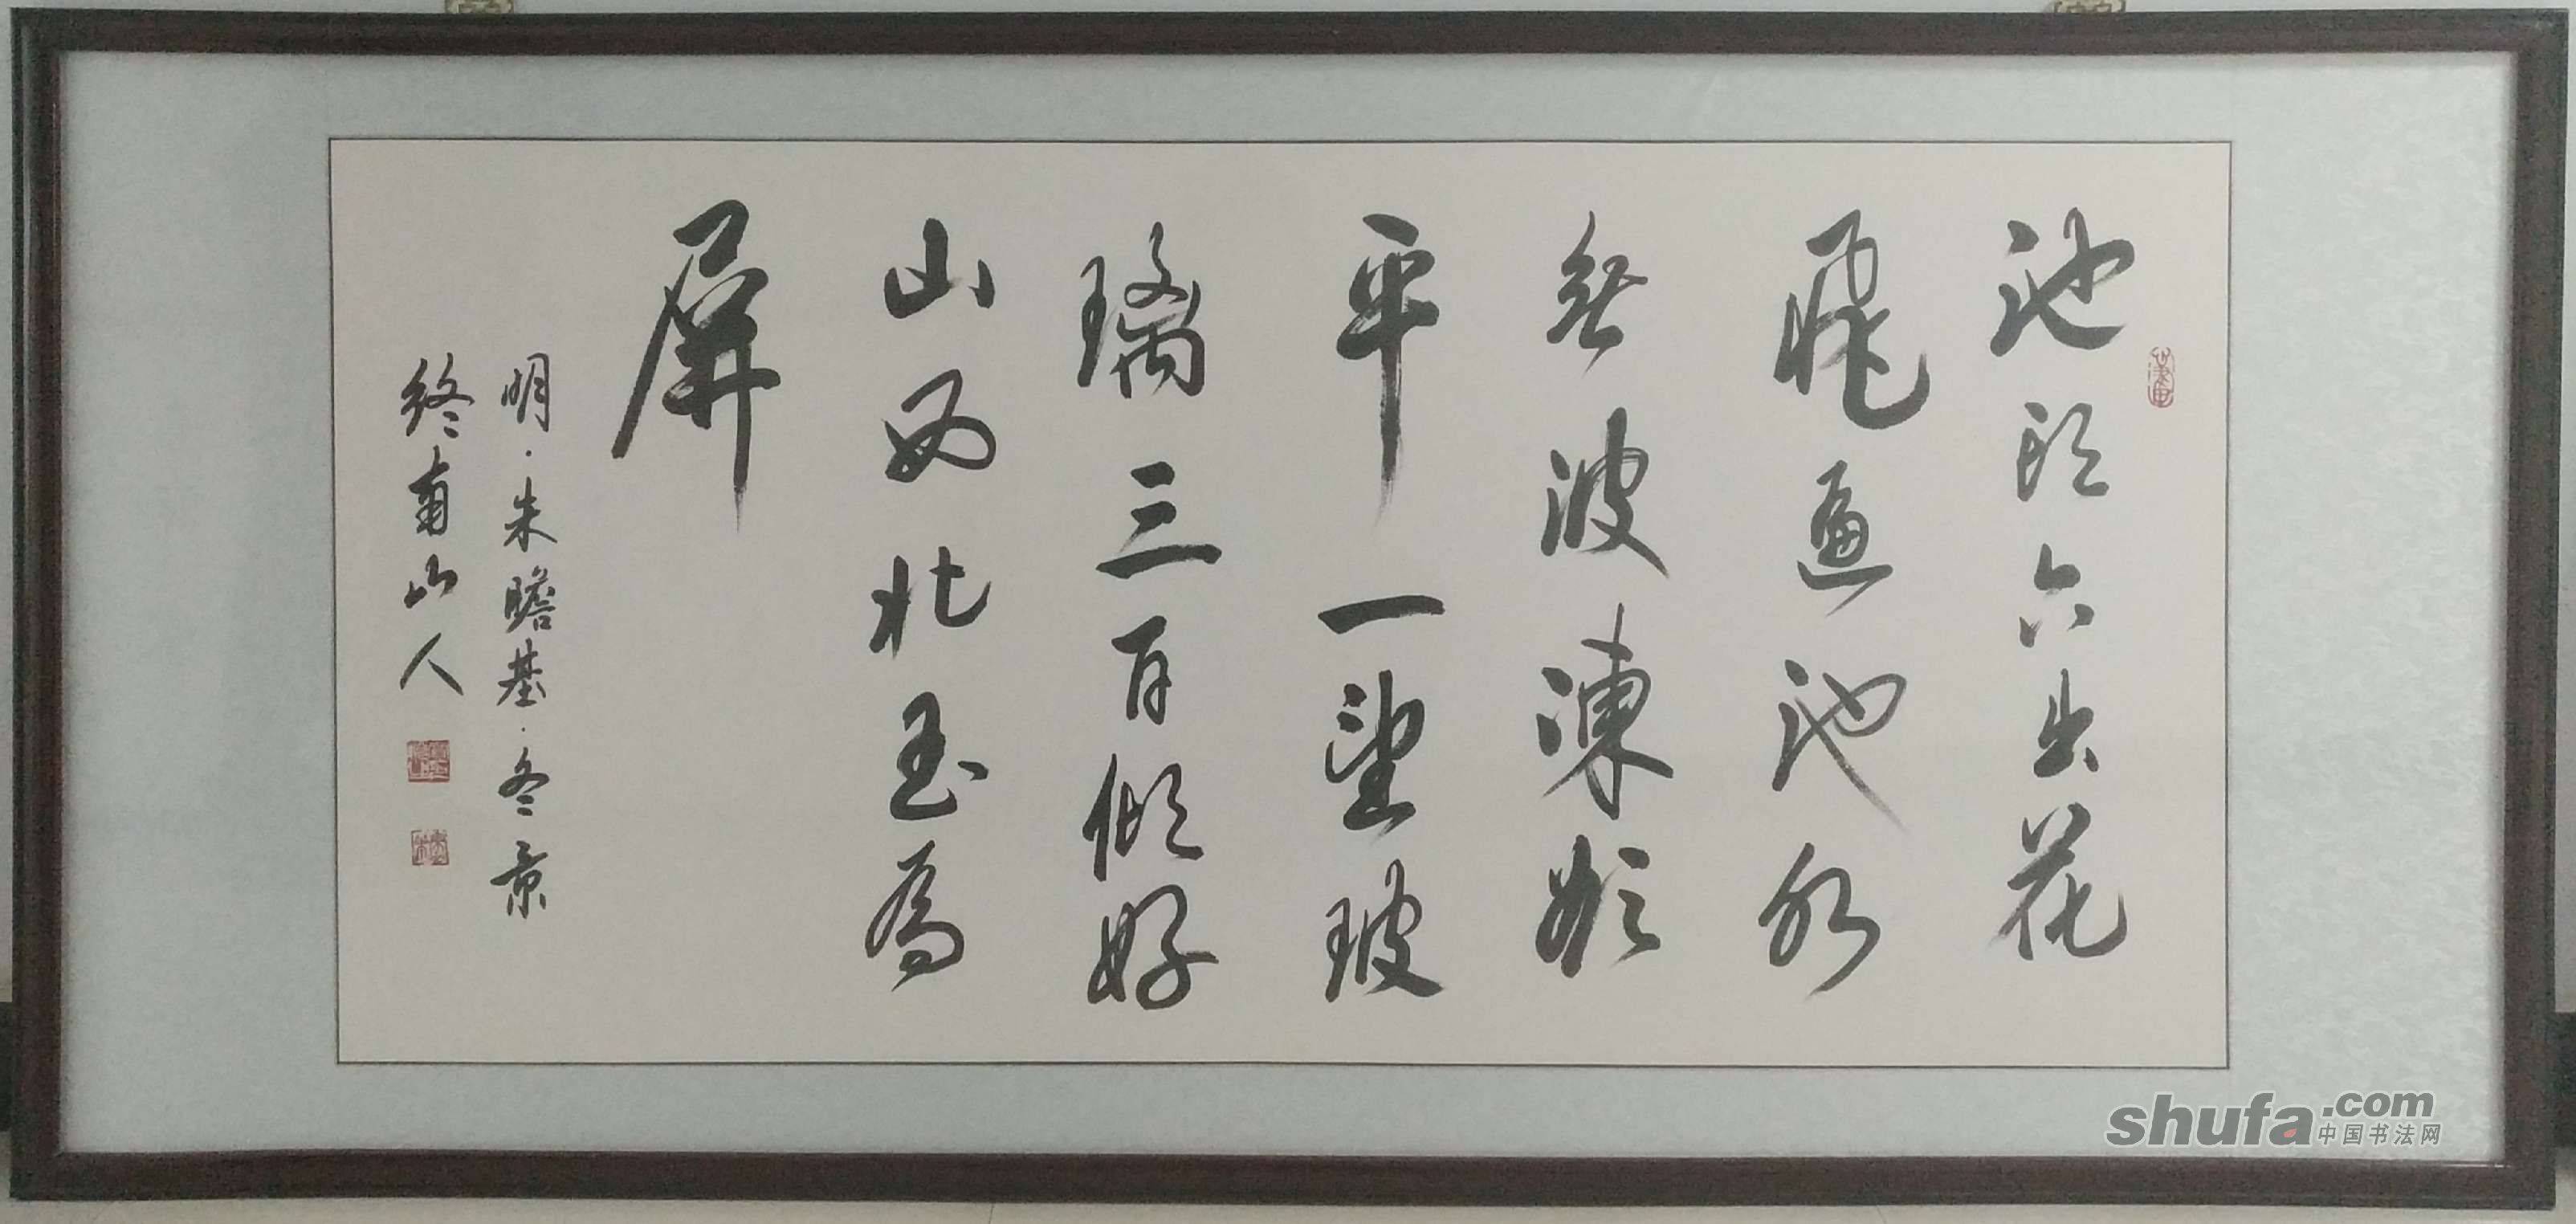 池头六出花
飛遍池水
無波凍欲
平一望玻
璃三百傾好
山西北玉為
屏
明·朱瞻基·冬景
终南山人
shufa.com
中国书法网